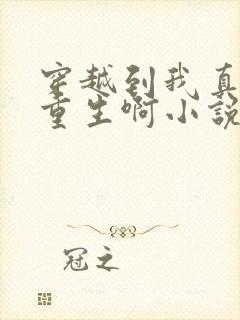 穿越到我真
重生啊小說
冠之